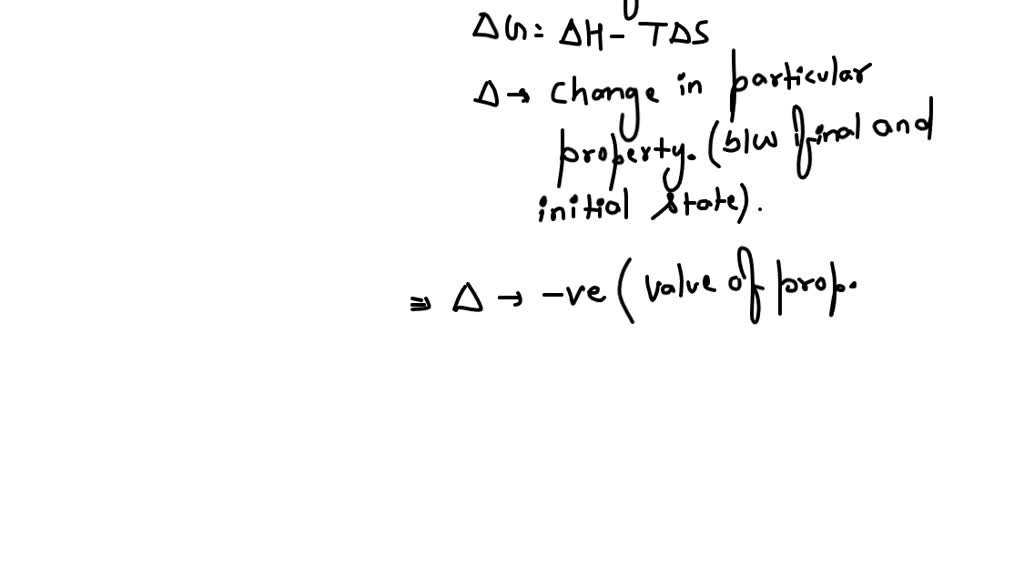 ΔG = ΔH - TΔS
Δ → Change in particular
property. (b/w final and
initial state).
⇒ Δ → -ve (value of prop.